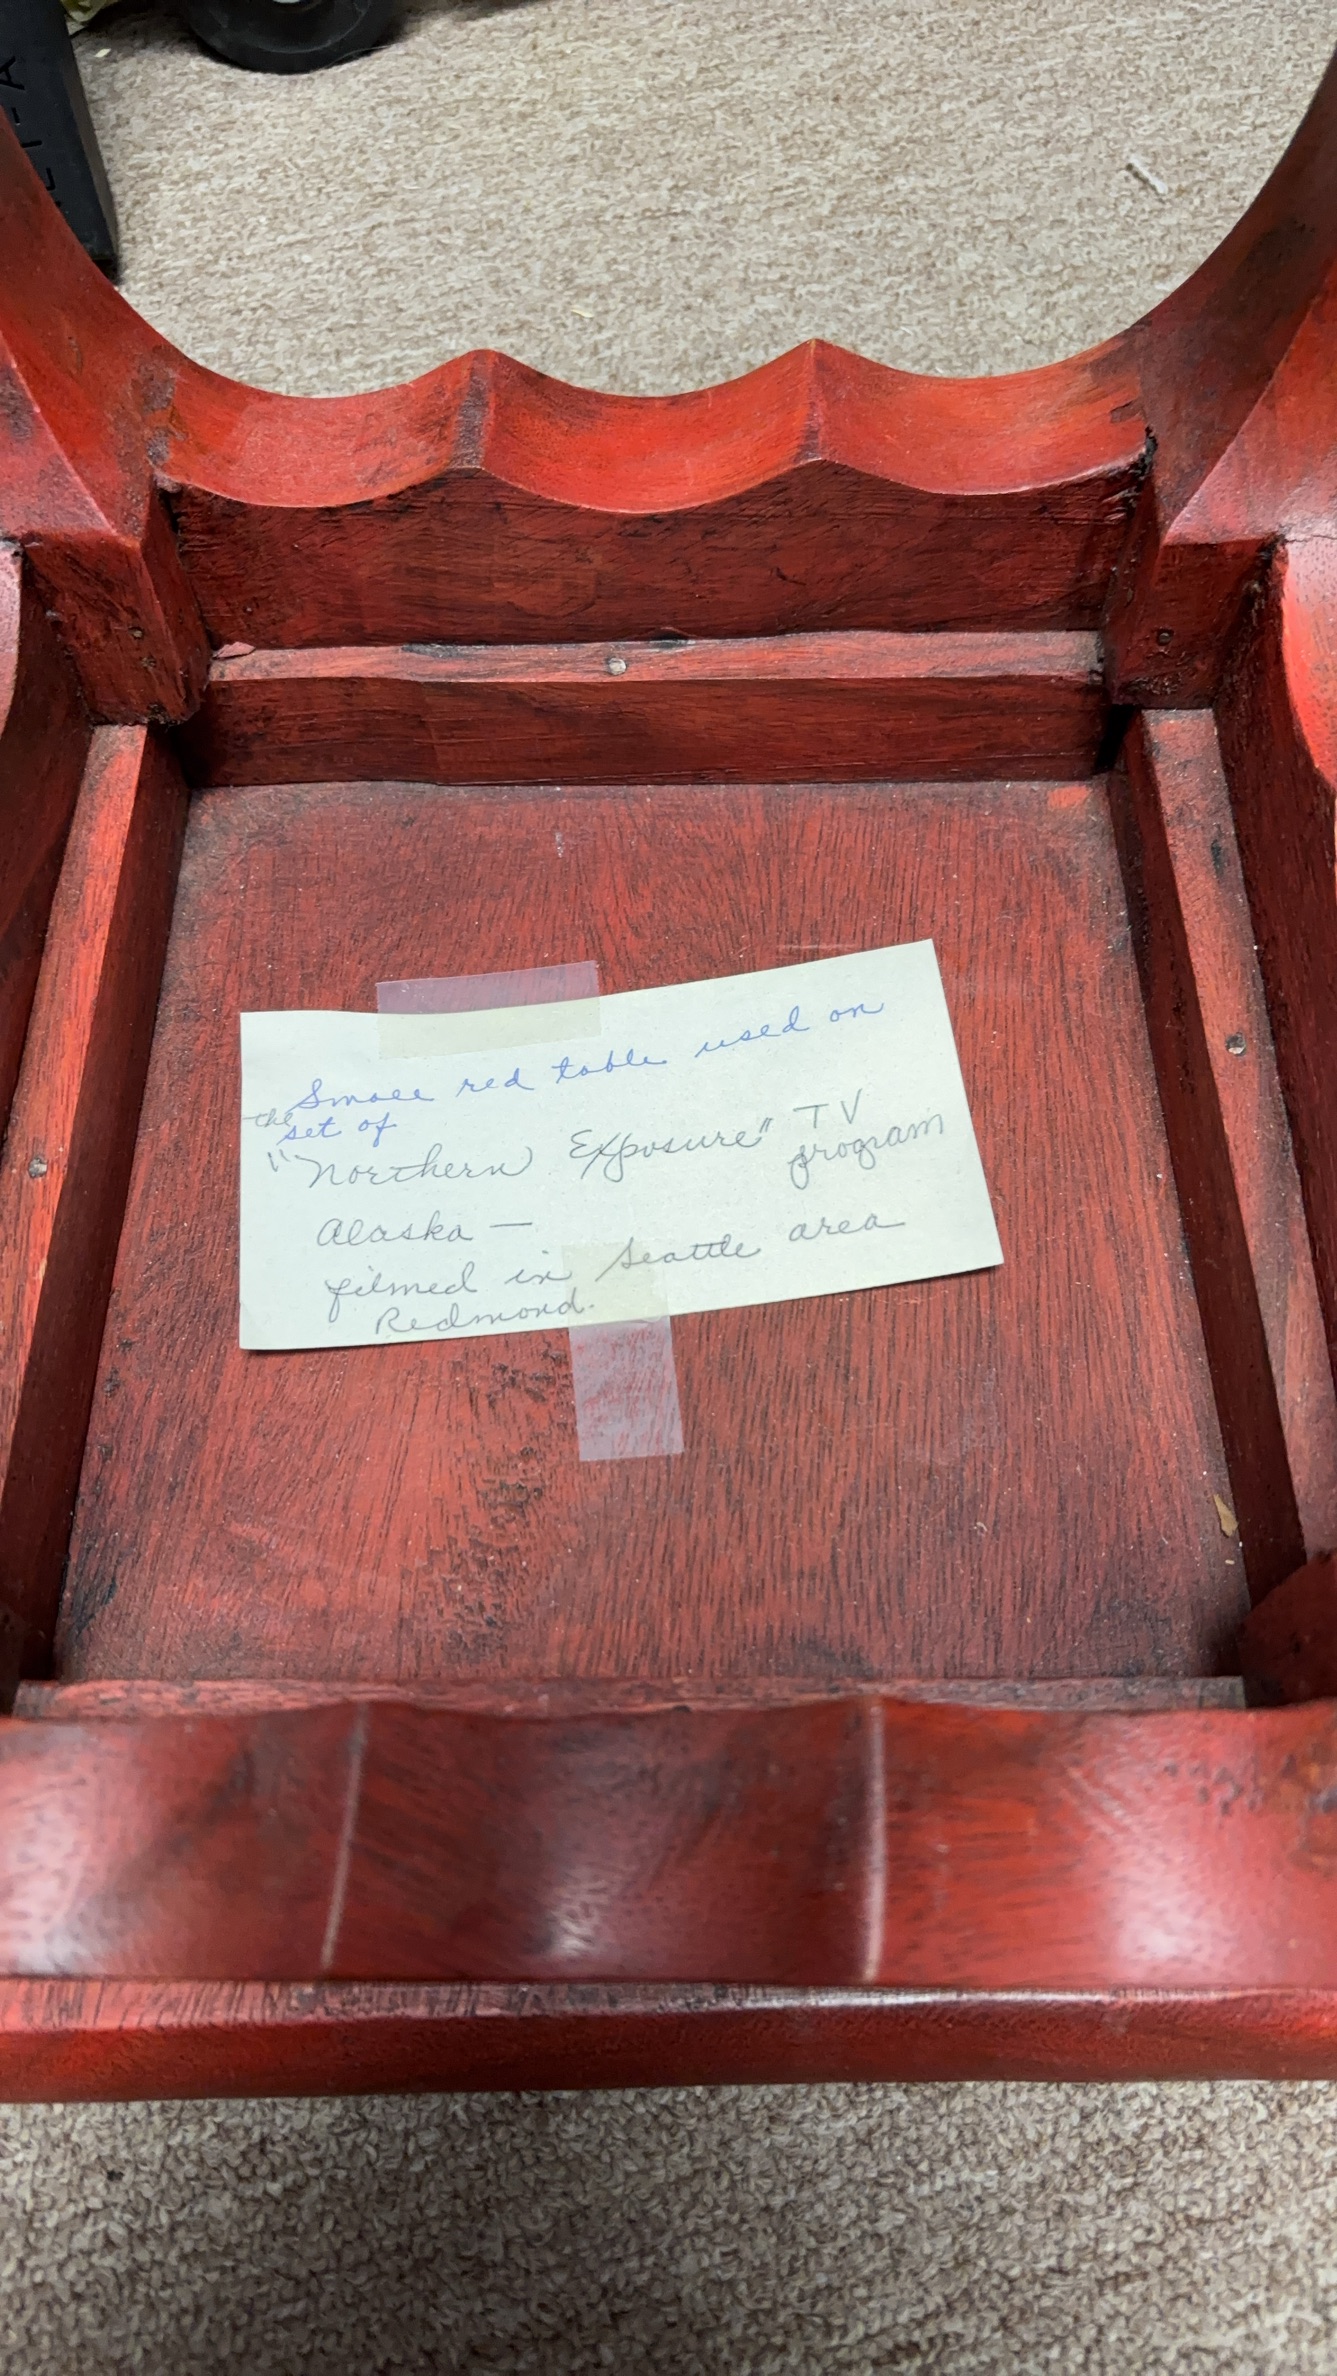 Small red table used on
the set of
"Northern Exposure" TV
program
Alaska —
filmed in Seattle area
Redmond.